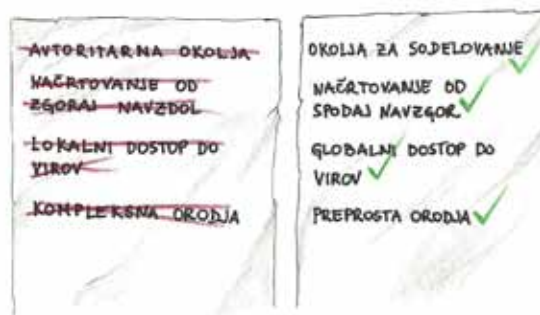 AVTORITARNA OKOLJA
NAČRTOVANJE OD
ZGORAJ NAVZDOL
LOKALNI DOSTOP DO
VIROV
KOMPLEKSNA ORODJA
OKOLJA ZA SODELOVANJE
NAČRTOVANJE OD
SPODAJ NAVZGOR
GLOBALNI DOSTOP DO
VIROV
PREPROSTA ORODJA